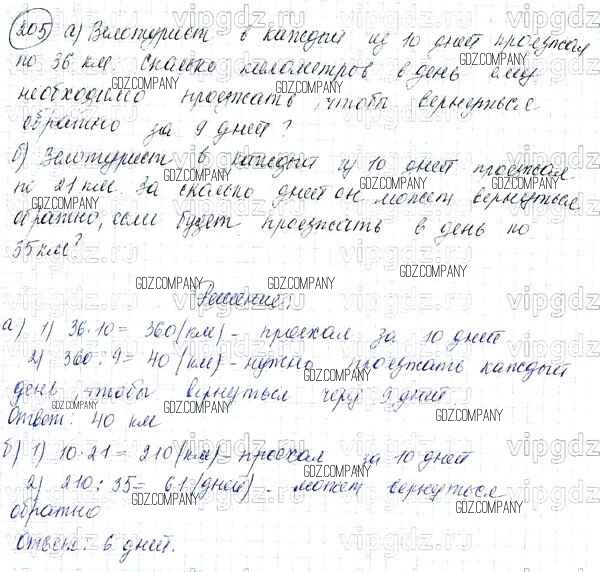 205 а) Велотурист в каждый из 10 дней проезжал
по 36 км. Сколько километров в день ему
необходимо проезжать, чтобы вернуться
обратно за 9 дней?
б) Велотурист в каждый из 10 дней проезжал
по 21 км. За сколько дней он может вернуться
обратно, если будет проезжать в день по
35 км?
Решение:
а) 1) 36·10 = 360 (км) - проехал за 10 дней
2) 360 : 9 = 40 (км) - нужно проезжать каждый
день, чтобы вернуться через 9 дней
Ответ: 40 км
б) 1) 10·21 = 210 (км) - проехал за 10 дней
2) 210 : 35 = 6 (дней) - может вернуться
обратно
Ответ: 6 дней.
vipgdz.ru
GDZ.COMPANY